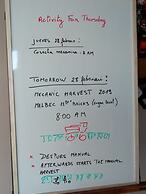 Activity For Thursday
JUEVES 28 febrero:
Cosecha mecanica: 8 AM
TOMORROW 28 febrero:
MECANIC HARVEST 2019
MELBEC (sugar level)
8:00 AM
x MANUAL
x AFTERWARDS STARTS THE MANUAL
HARVEST